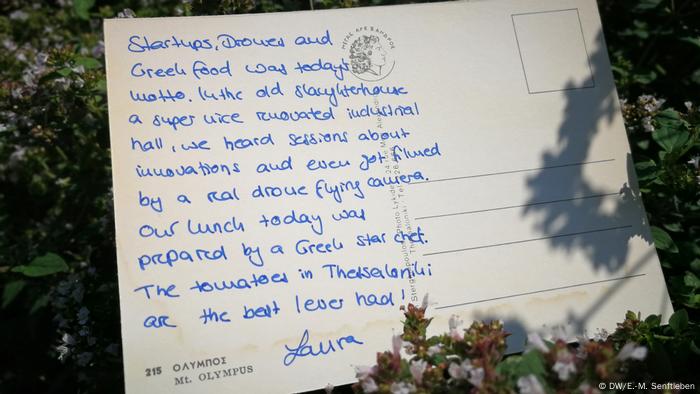 Startups, Drones and
Greek food was today's
motto. In the old slaughterhouse
a super nice renovated industrial
hall, we heard sessions about
innovations and even got filmed
by a real drone flying camera.
Our lunch today was
prepared by a Greek star chef.
The tomatoes in Thessaloniki
are the best I ever had!
Laura
215 ΟΛΥΜΠΟΣ
Mt. OLYMPUS
ΜΕΓΑΣ ΑΛΕΞΑΝΔΡΟΣ
© DW/E.-M. Senftleben